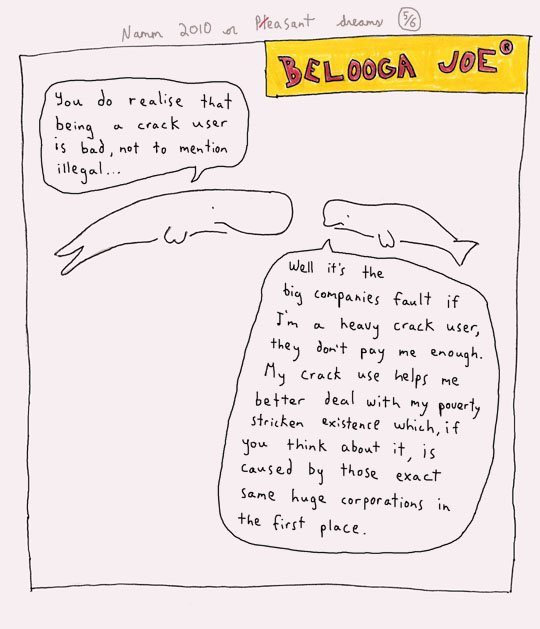 Namm 2010 or Pleasant dreams 5/6
BELOOGA JOE®
You do realise that
being a crack user
is bad, not to mention
illegal...
Well it's the
big companies fault if
I'm a heavy crack user,
they don't pay me enough.
My crack use helps me
better deal with my poverty
stricken existence which, if
you think about it, is
caused by those exact
same huge corporations in
the first place.